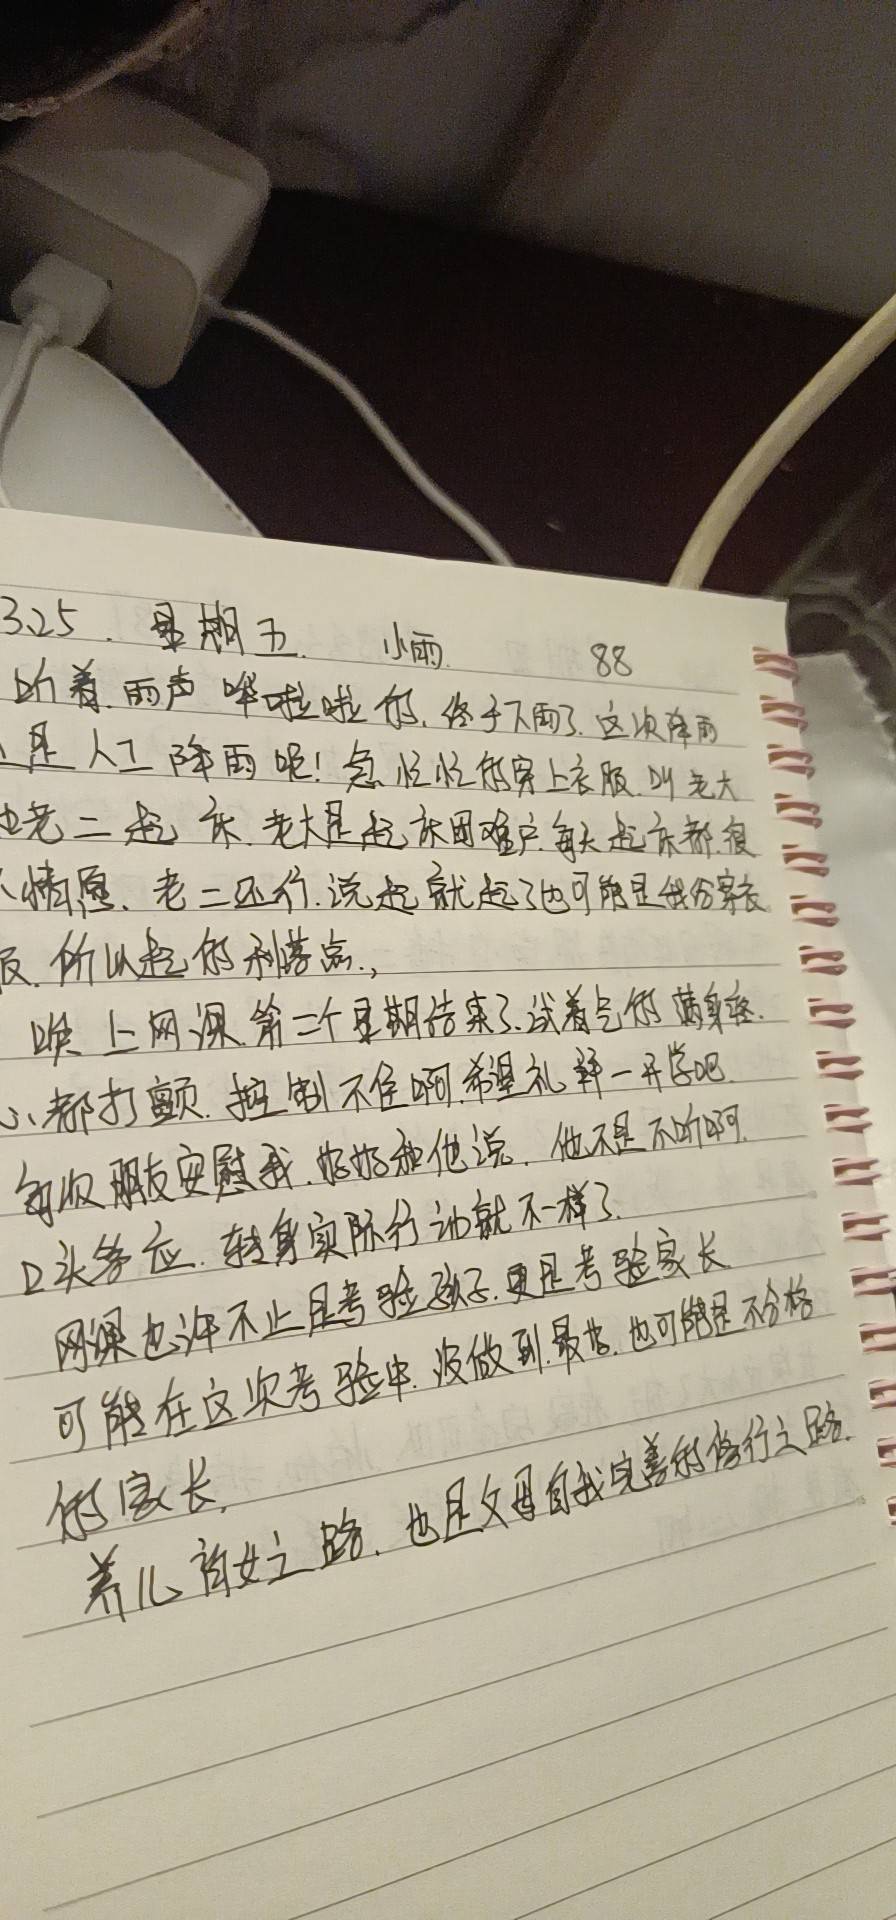 3.25. 星期五. 小雨. 88
听着.雨声哗啦啦的.终于下雨了.这次降雨
是人工降雨呢!急忙忙的穿上衣服.叫老大
老二起床.老大是起床困难户.每天起床都.很
情愿.老二还行.说起就起了也可能是我给穿衣
所以起的利落点.,
唉上网课.第二个星期结束了.气的满身疼.
都打颤.控制不住啊.希望礼拜一开学吧.
朋友安慰我.好好和他说.他不是不听啊.
口头答应.转身实际行动就不一样了.
网课也许不止是考验孩子.更是考验家长
可能在这次考验中.没做到.最好.也可能是不合格
的家长.
养儿育女之路.也是父母自我完善的修行之路.